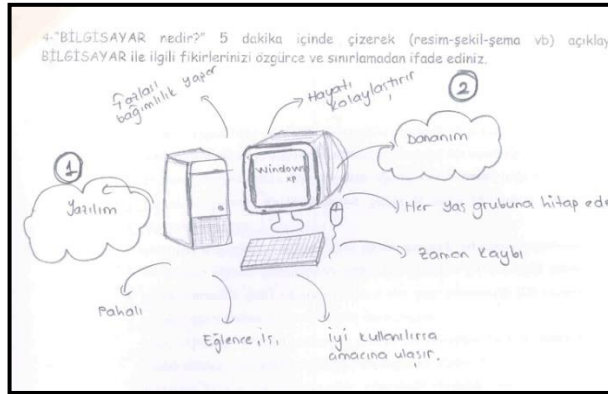 4-"BİLGİSAYAR nedir?" 5 dakika içinde çizerek (resim-şekil-şema vb) açıklay
BİLGİSAYAR ile ilgili fikirlerinizi özgürce ve sınırlamadan ifade ediniz.
Fazlası
bağımlılık yapar
Hayatı
kolaylaştırır
2
Donanım
1
Yazılım
Windows
xp
Her yaş grubuna hitap ede
Zaman kaybı
Pahalı
Eğlence, İş,
İyi kullanılırsa
amacına ulaşır.